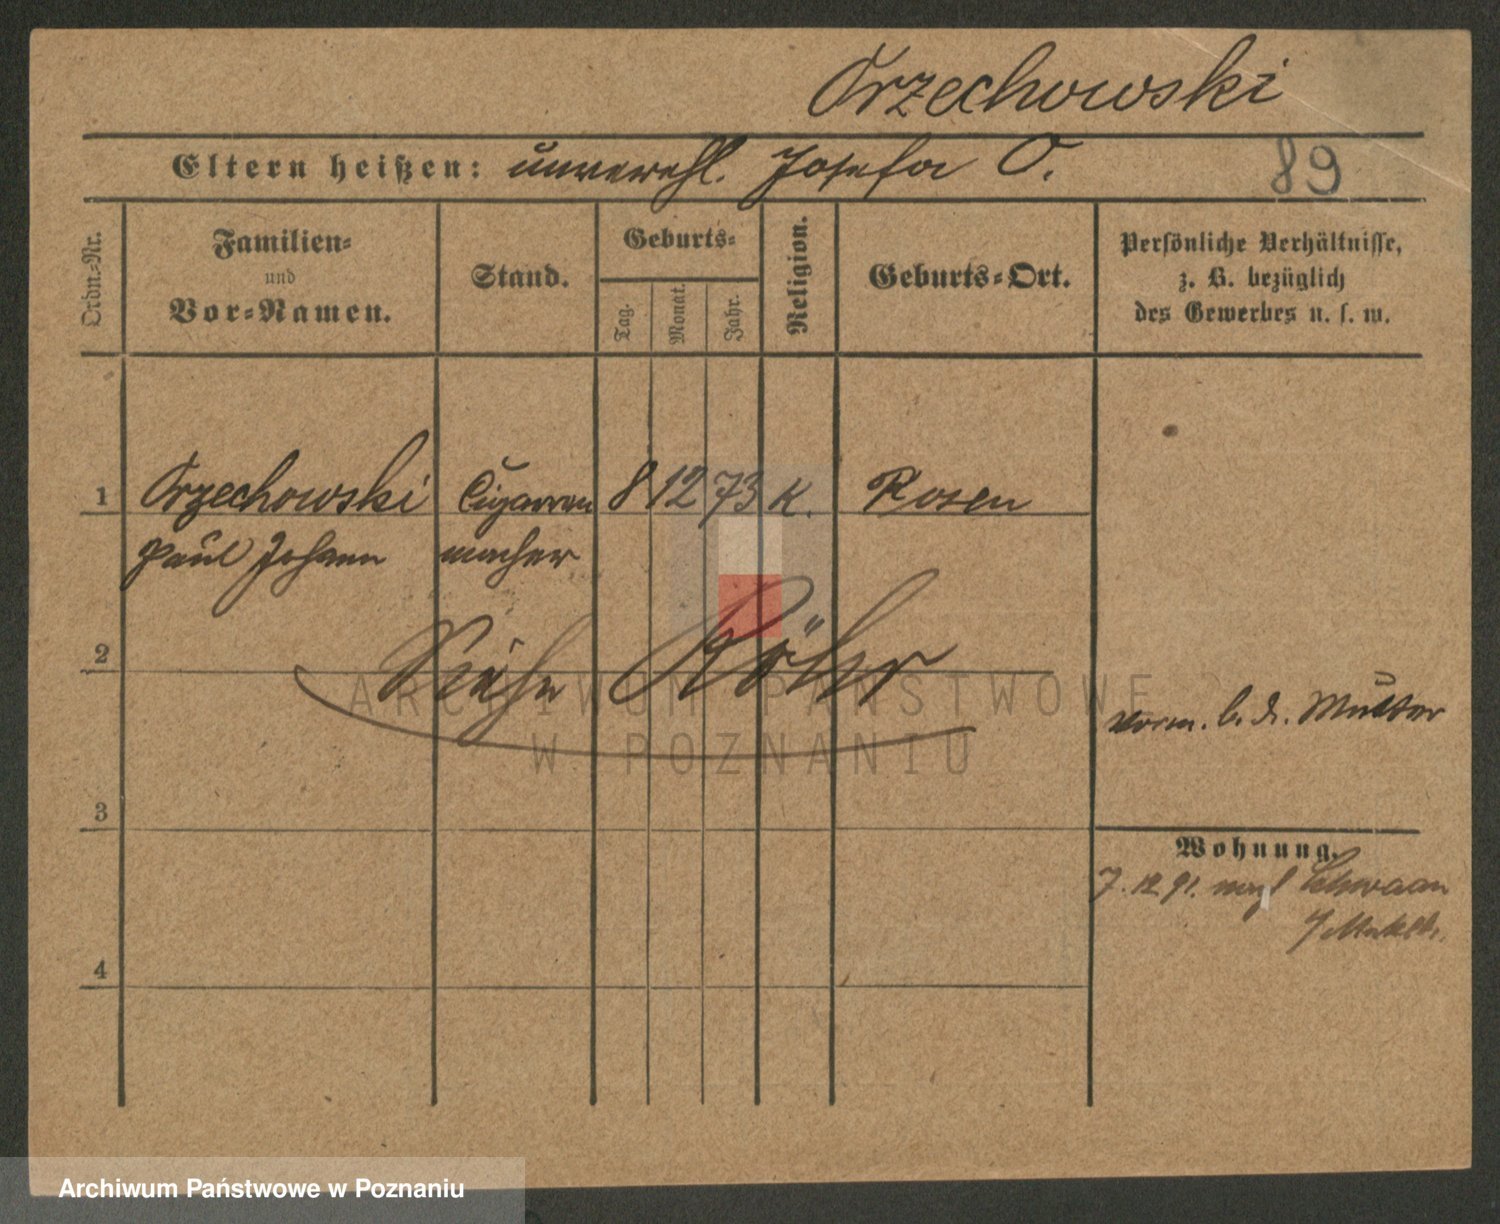 Orzechowski
Eltern heißen: unverehl. Josefa O.
89
Ordn.-Nr.
Familien-
und
Vor-Namen.
Stand.
Geburts-
Tag.
Monat.
Jahr.
Religion.
Geburts-Ort.
Persönliche Verhältnisse,
z. B. bezüglich
des Gewerbes u. s. w.
1 Orzechowski Cigarren 8 12 73 K. Posen
Paul Johann macher
2 Siehe Röhr
ARCHIWUM PAŃSTWOWE
W POZNANIU
vorm. b. d. Mutter
3
Wohnung.
7. 12 91. nach Schwaan
4
Archiwum Państwowe w Poznaniu